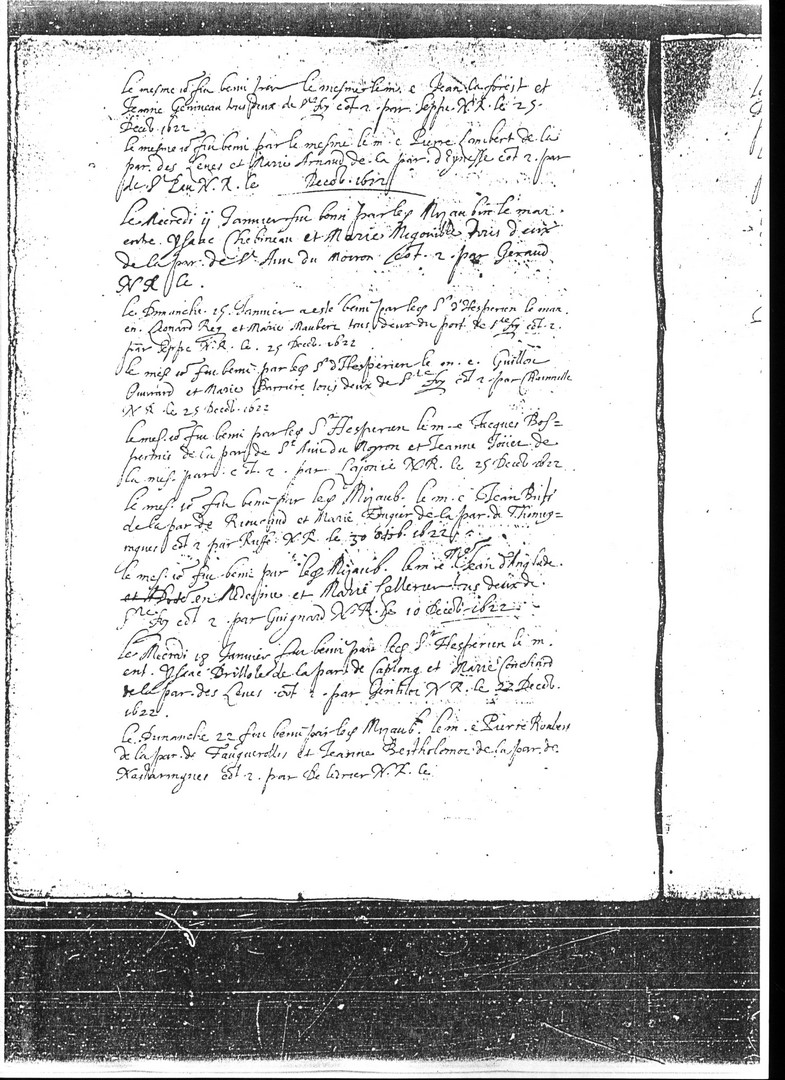 le mesme jo. fut beni par le mesme le m. e Jean laforest et
Jeanne Genineau tous deux de Ste foy cot. 2. par Seppe N.R. le 25.
Deceb. 1622
le mesme jo. fut beni par le mesme le m. e Pierre Lombert de la
par. des Leues et Marie Arnaud de la par. d'Eynesse cot. 2. par
de St N.R. le Deceb. 1622
le Mecredi 11 Jannier fut beni par les Mijaub. le mar.
entre Ysaac Chebineau et Marie tous deux
de la par. de St Auit du Moiron cot. 2. par Geraud
N R le.
le Dimanche 15 Jannier a esté beni par les Sr d'Hesperien le mar.
en. Leonard Rey et Marie Maubert tous deux du port de Ste foy cot. 2.
par Seppe N.R. le. 25 Deceb. 1622
le mes. jo. fut beni par les Sr d'Hesperien le m. e. Guillou
Ouurard et Marie Barriere tous deux de Ste foy cot 2. par
N R. le 25 Decob. 1622
le mes. jo. fut beni par les Sr Hesperien le m. e Jacques
de la par. de St Auit du Moyron et Jeanne de
la mes. par. cot. 2. par Lajonie N.R. le 25 Deceb 1622
le mes. jo. fut beni par les Mijaub. le m. e Jean
de la par de Riocaud et Marie de la par. de
cot 2 par Ruffe N.R. le 30 octob. 1622
le mes. jo. fut beni par les Mijaub. le m. e Jean d'Anglade.
en Medecine et Marie Sellerier tous deux de
Ste foy cot 2. par Guignard N.R. le 10 Deceb. 1622
le Mecredi 18 Jannier fut beni par les Sr Hesperien le m.
ent. Ysaac Brillole de la par. de Caplong et Marie
de la par. des Leues cot 2. par Gentilot N R. le 22 Deceb.
1622.
le Dimanche 22 fut beni par les Mijaub. le m. e Pierre
de la par. de Fauguerolles et Jeanne Bertholomé de la par. de
cot. 2. par N.R. le